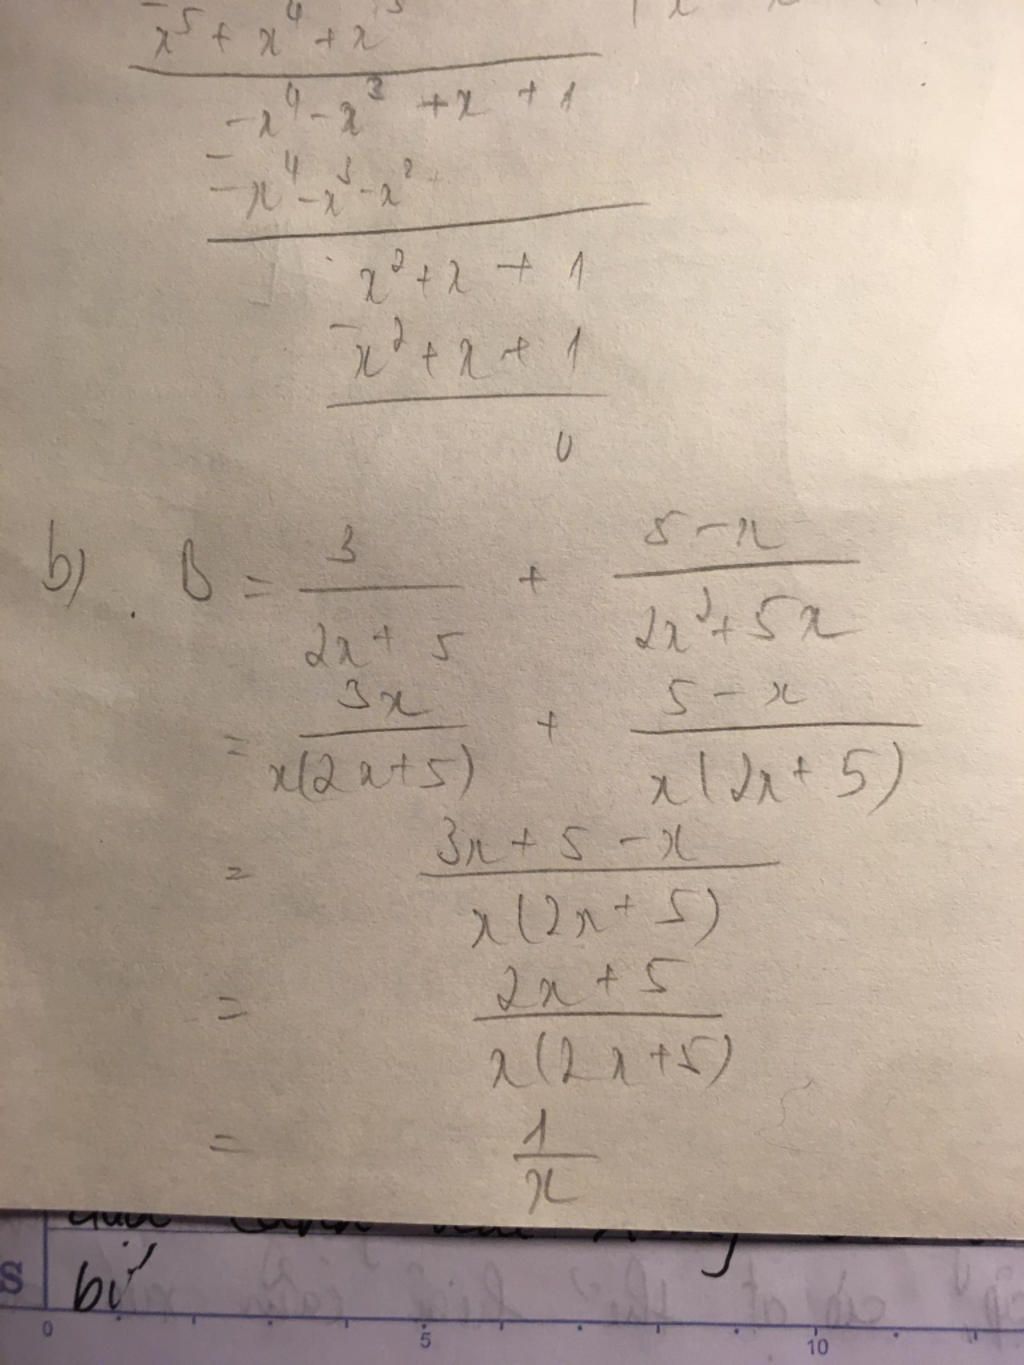 x⁵ + x⁴ + x³
-x⁴ - x³ + x + 1
- -x⁴ - x³ - x²
x² + x + 1
- x² + x + 1
0
b) B = 3/(2x + 5) + (5 - x)/(2x² + 5x)
= 3x/(x(2x + 5)) + (5 - x)/(x(2x + 5))
= (3x + 5 - x)/(x(2x + 5))
= (2x + 5)/(x(2x + 5))
= 1/x
S bi
0 5 10